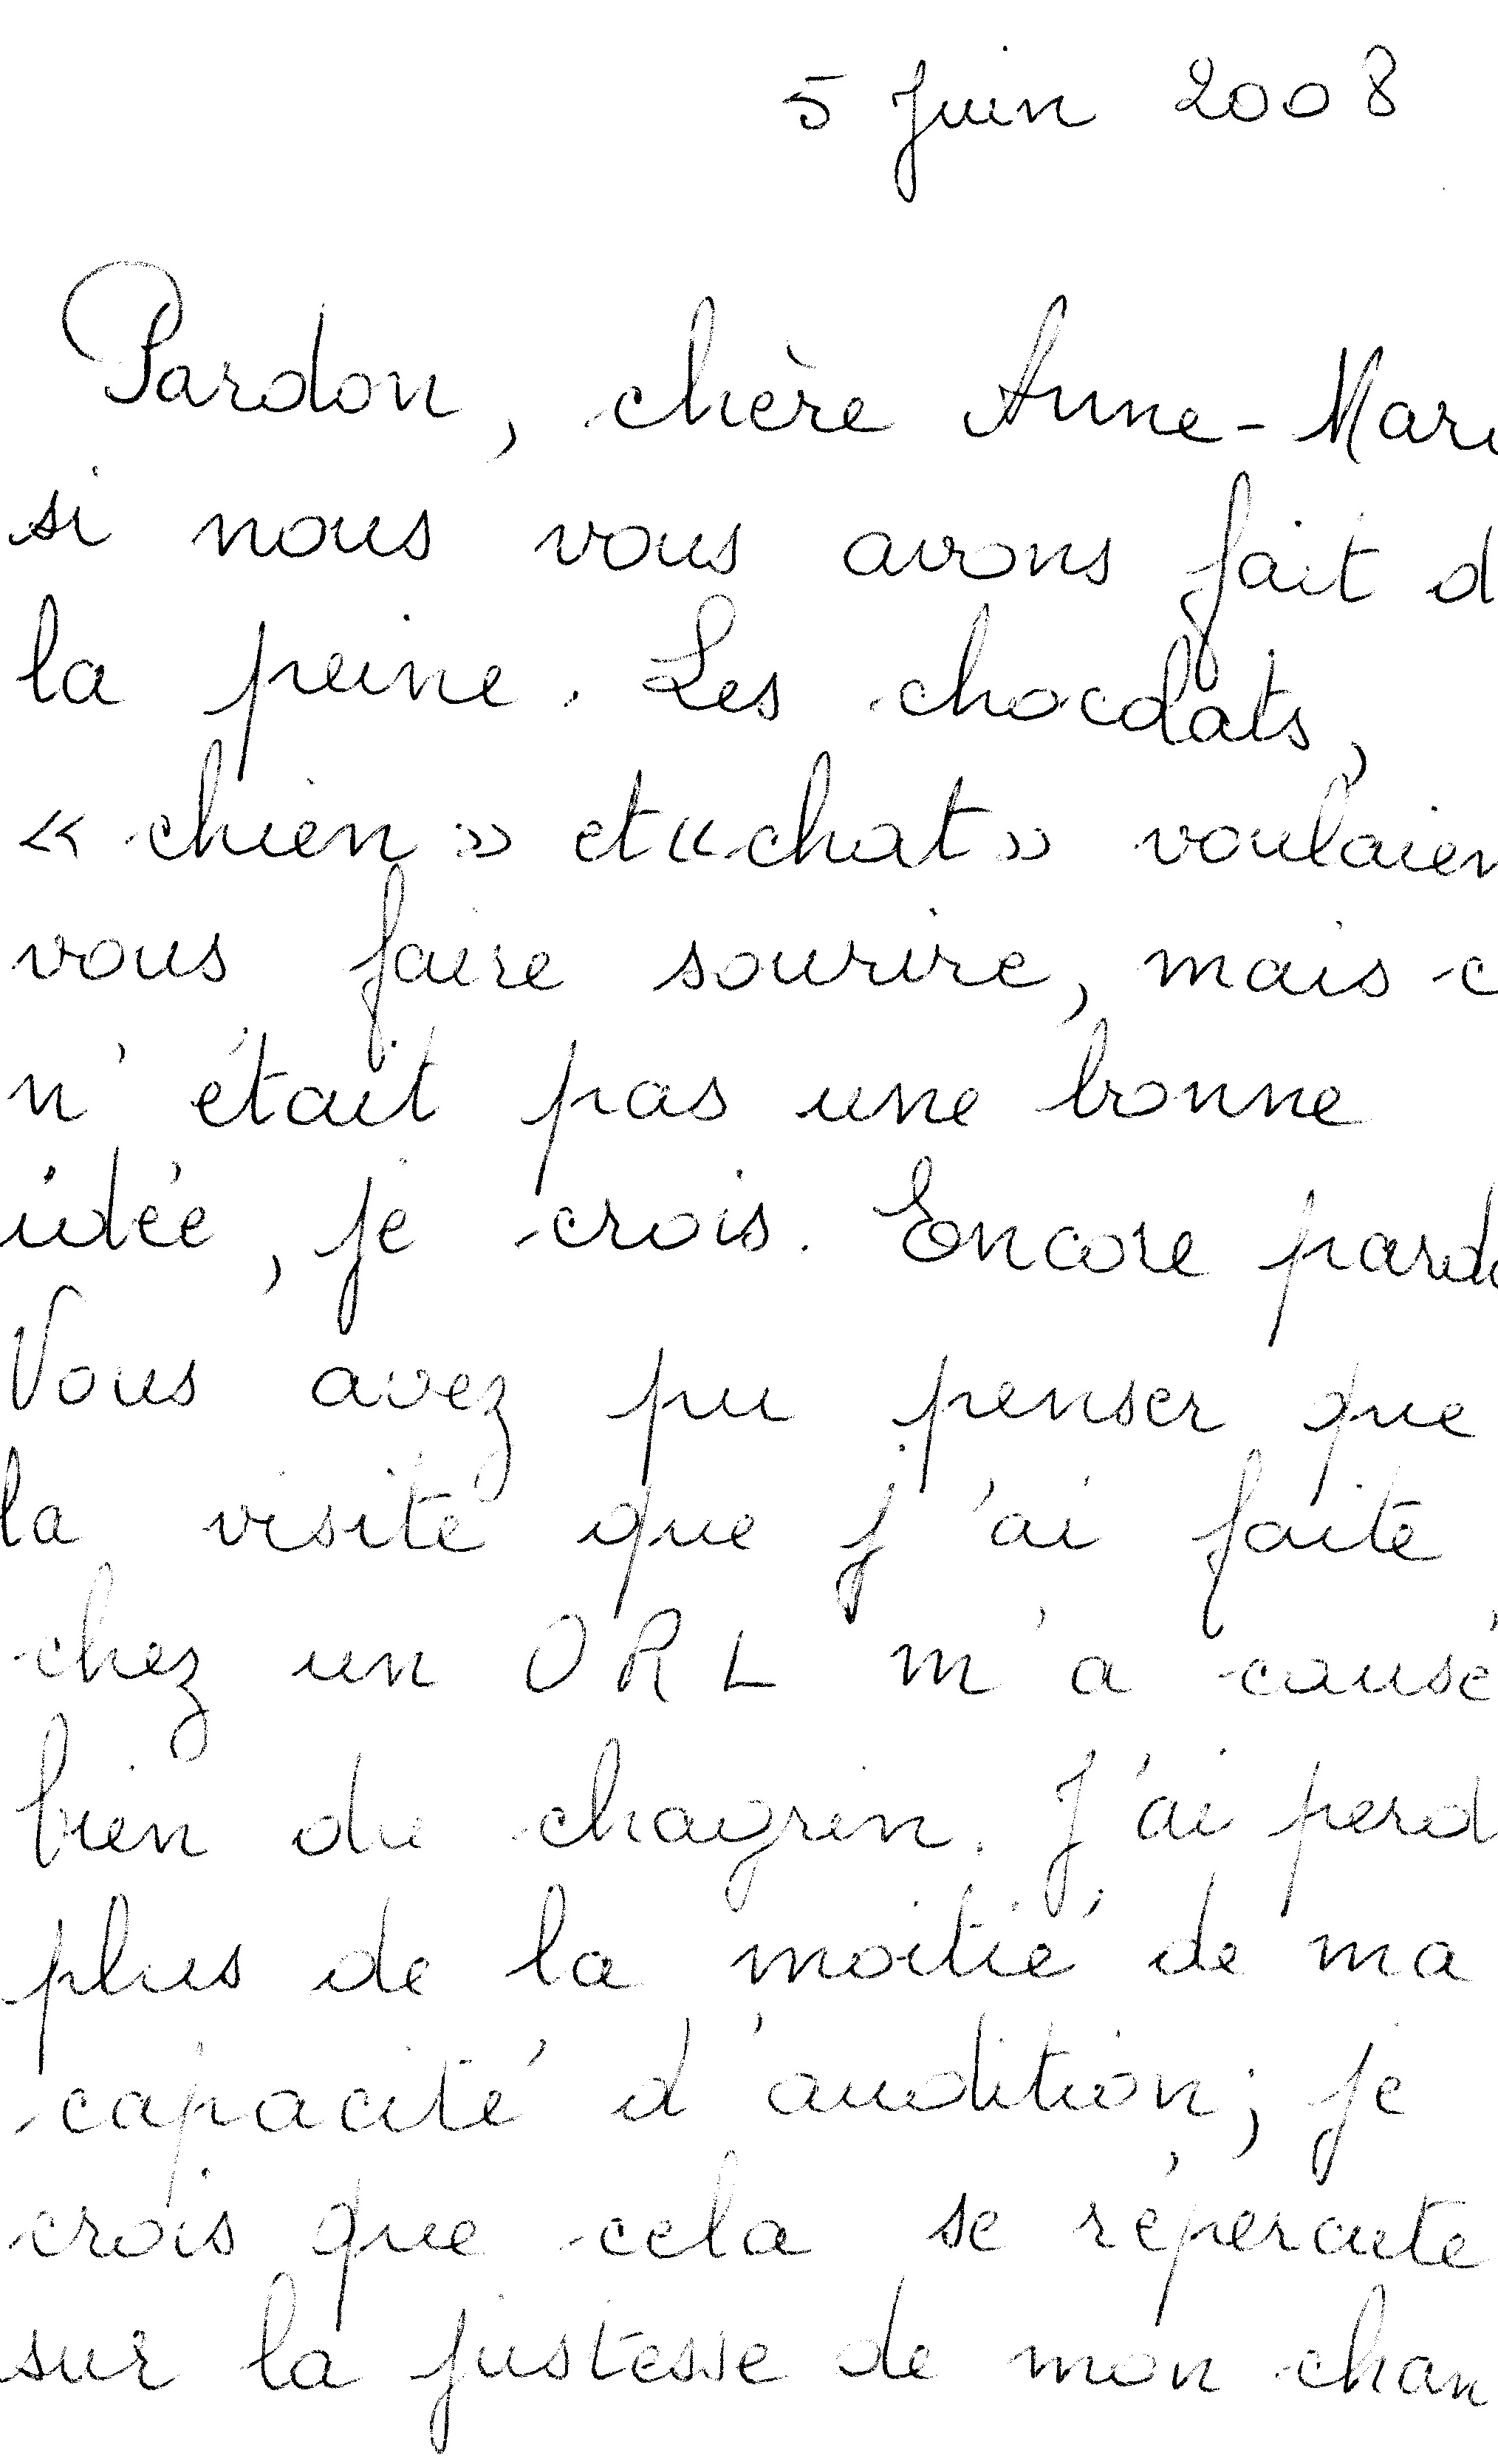 5 Juin 2008
Pardon, chère Anne-Mari
si nous vous avons fait d
la peine. Les chocolats,
« chien » et « chat » voulaien
vous faire sourire, mais c
n'était pas une bonne
idée, je crois. Encore pardo
Vous avez pu penser que
la visite que j'ai faite
chez un ORL m'a causé
bien du chagrin. J'ai perd
plus de la moitié de ma
capacité d'audition; je
crois que cela se répercute
sur la justesse de mon chan